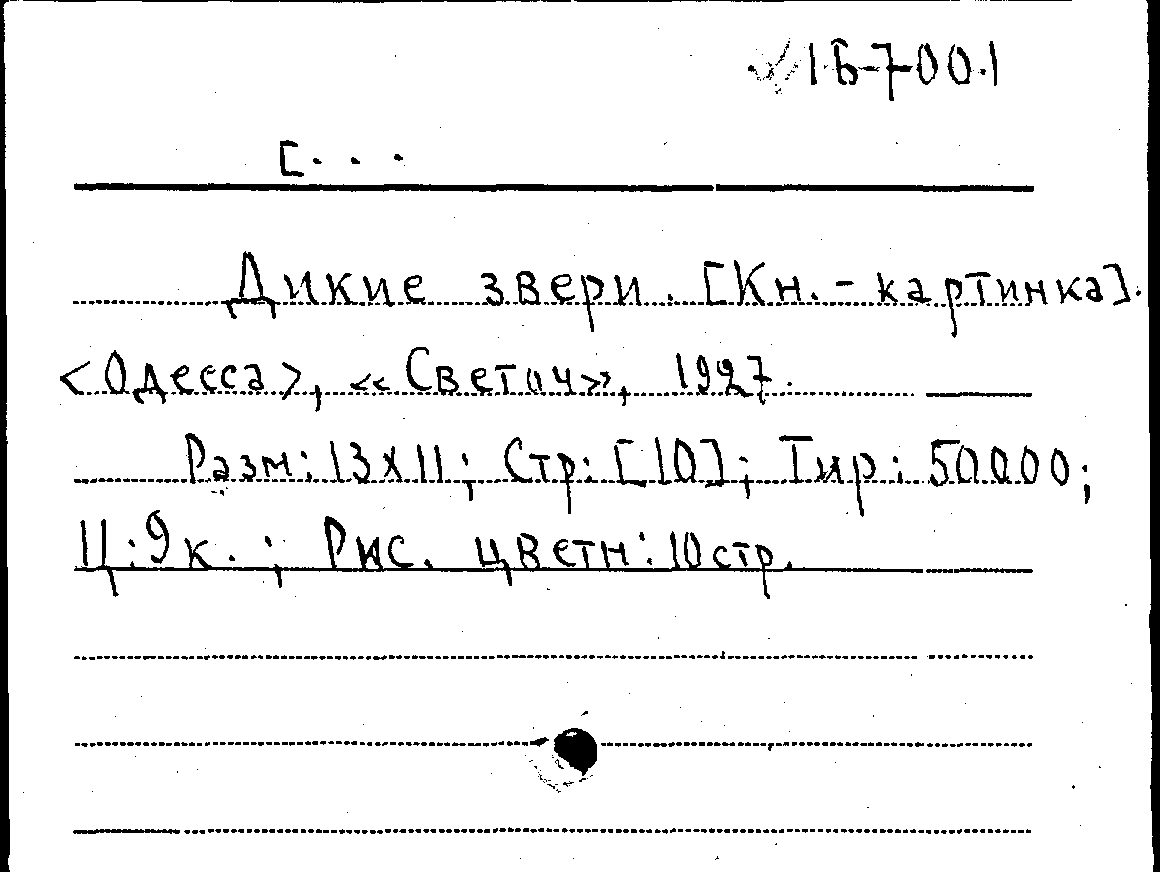 1Б-7-00.1
[...
Дикие звери. [Кн.-картинка].
<Одесса>, «Светоч», 1927.
Разм: 13х11; Стр: [10]; Тир: 50000;
Ц: 9к.; Рис. цветн: 10 стр.